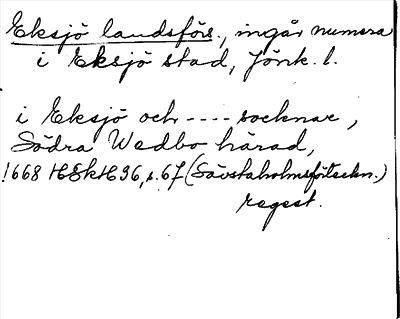 Eksjö landsförs., ingår numera
i Eksjö stad, Jönk. l.
i Eksjö och ---- socknar,
Södra Wedbo härad,
1668 HSkH36, s. 67 (Sävstaholmsförteckn.)
regest.